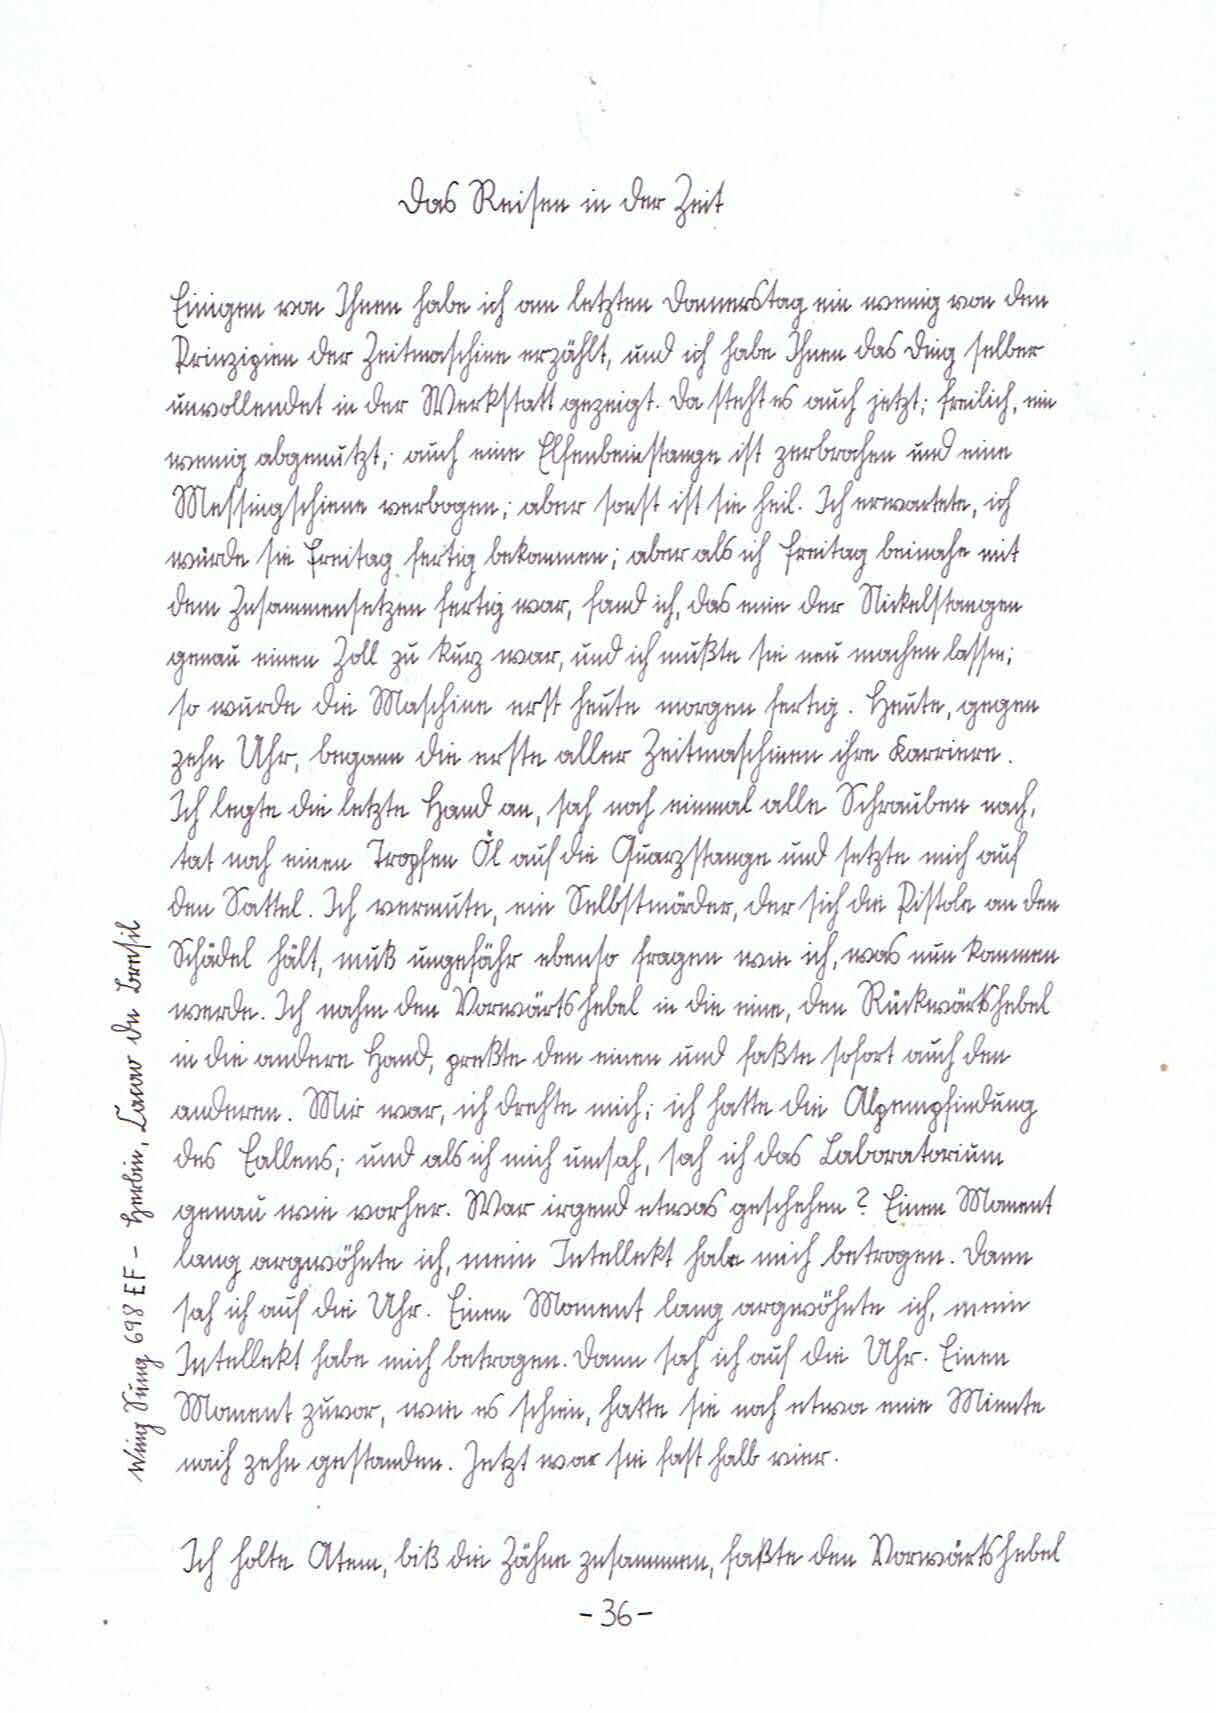 Das Reisen in der Zeit
Einigen von Ihnen habe ich am letzten Donnerstag ein wenig von den
Prinzipien der Zeitmaschine erzählt, und ich habe Ihnen das Ding selber
unvollendet in der Werkstatt gezeigt. Da steht es auch jetzt; freilich, ein
wenig abgenutzt; auch eine Elfenbeinstange ist zerbrochen und eine
Messingschiene verbogen; aber sonst ist sie heil. Ich erwartete, ich
würde sie Freitag fertig bekommen; aber als ich Freitag beinahe mit
dem Zusammensetzen fertig war, fand ich, das eine der Nickelstangen
genau einen Zoll zu kurz war, und ich mußte sie neu machen lassen;
so wurde die Maschine erst heute morgen fertig. Heute, gegen
zehn Uhr, begann die erste aller Zeitmaschinen ihre Karriere.
Ich legte die letzte Hand an, sah noch einmal alle Schrauben nach,
tat noch einen Tropfen Öl auf die Quarzstange und setzte mich auf
den Sattel. Ich vermute, ein Selbstmörder, der sich die Pistole an den
Schädel hält, muß ungefähr ebenso fragen wie ich, was nun kommen
werde. Ich nahm den Vorwärtshebel in die eine, den Rückwärtshebel
in die andere Hand, preßte den einen und faßte sofort auch den
anderen. Mir war, ich drehte mich; ich hatte die Alpempfindung
des Fallens; und als ich mich umsah, sah ich das Laboratorium
genau wie vorher. War irgend etwas geschehen? Einen Moment
lang argwöhnte ich, mein Intellekt habe mich betrogen. Dann
sah ich auf die Uhr. Einen Moment lang argwöhnte ich, mein
Intellekt habe mich betrogen. Dann sah ich auf die Uhr. Einen
Moment zuvor, wie es schien, hatte sie noch etwa eine Minute
nach zehn gestanden. Jetzt war sie fast halb vier.
Ich holte Atem, biß die Zähne zusammen, faßte den Vorwärtshebel
-36-
Wing Sung 698 EF - Herbin, Cacao du Bresil